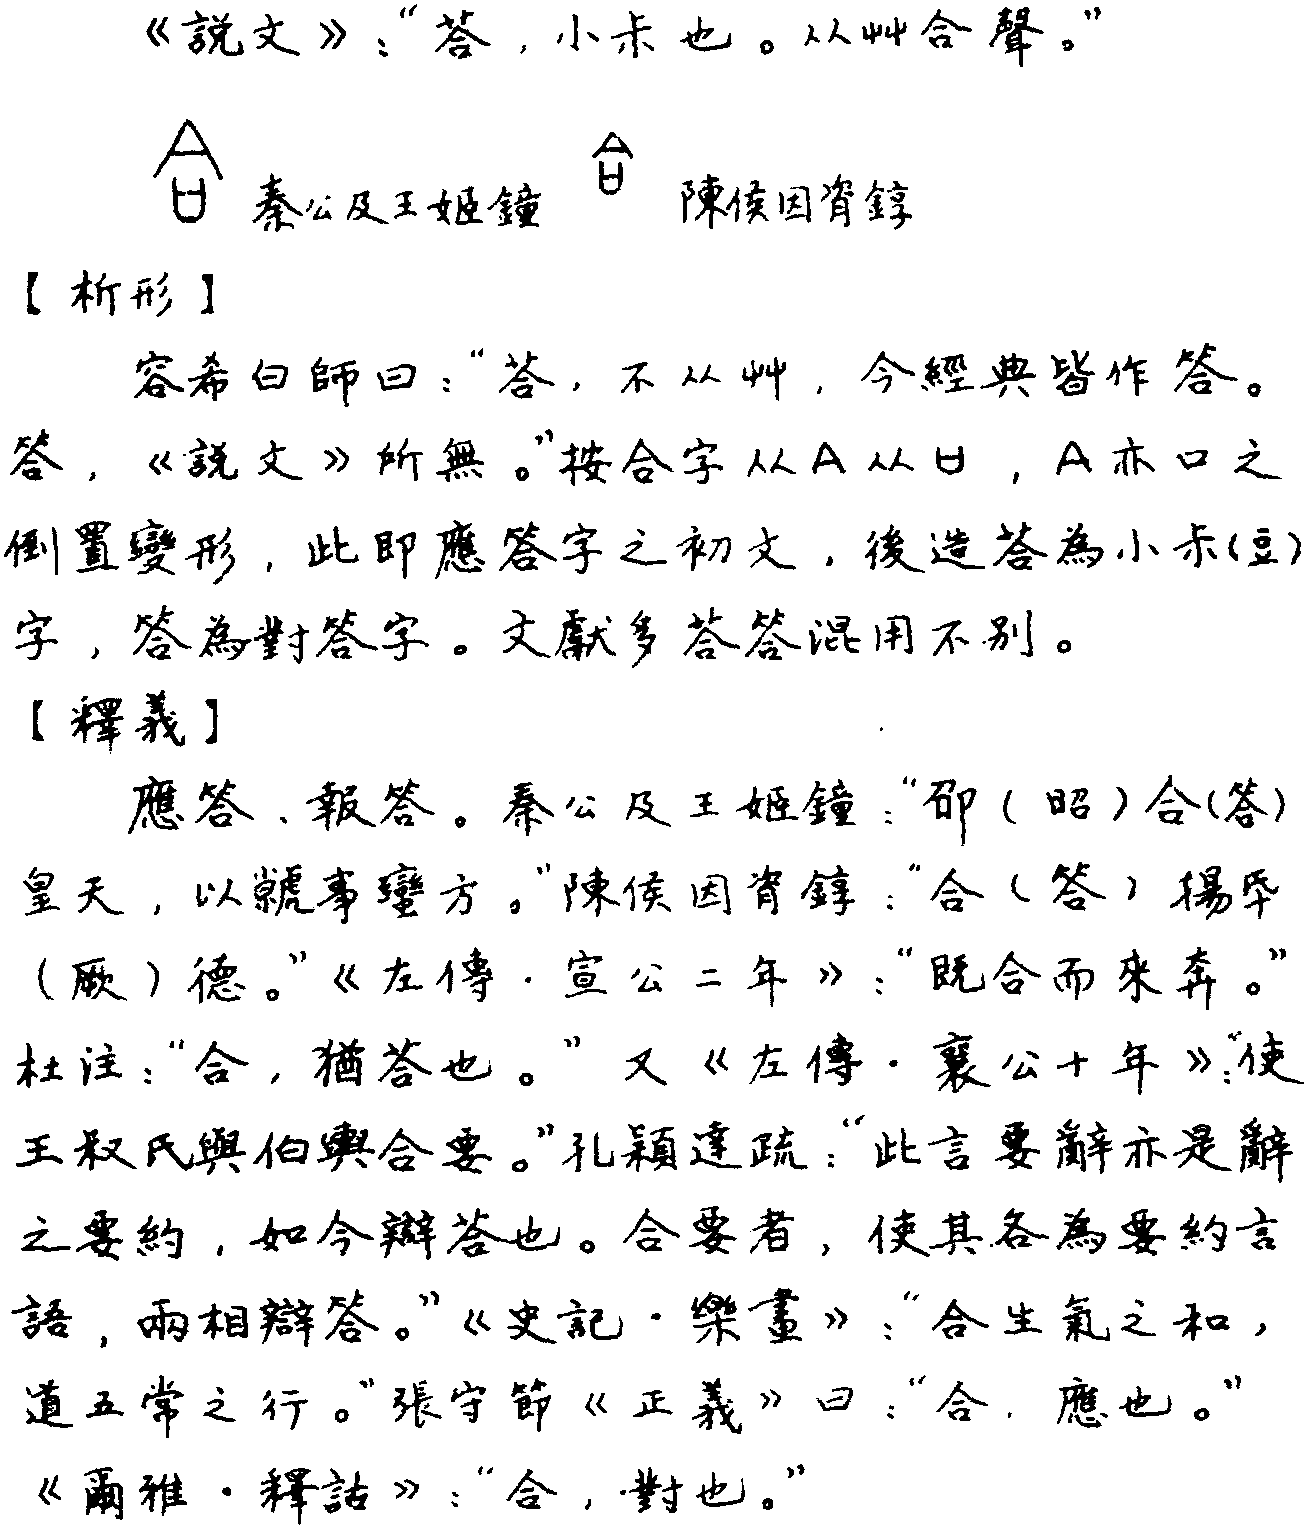 《説文》：“荅，小尗也。从艸合聲。”
秦公及王姬鐘 陳侯因𬱖錞
【析形】
容希白師曰：“荅，不从艸，今經典皆作答。
答，《説文》所無。”按合字从亼从口，亼亦口之
倒置變形，此即應答字之初文，後造荅為小尗（豆）
字，答為對答字。文獻多荅答混用不别。
【釋義】
應答、報答。秦公及王姬鐘：“卲（昭）合（答）
皇天，以虩事蠻方。”陳侯因𬱖錞：“合（答）揚氒
（厥）德。”《左傳·宣公二年》：“既合而來奔。”
杜注：“合，猶荅也。”又《左傳·襄公十年》：“使
王叔氏與伯輿合要。”孔穎達疏：“此言要辭亦是辭
之要約，如今辯荅也。合要者，使其各為要約言
語，兩相辯答。”《史記·樂畫》：“合生氣之和，
道五常之行。”張守節《正義》曰：“合，應也。”
《爾雅·釋詁》：“合，對也。”